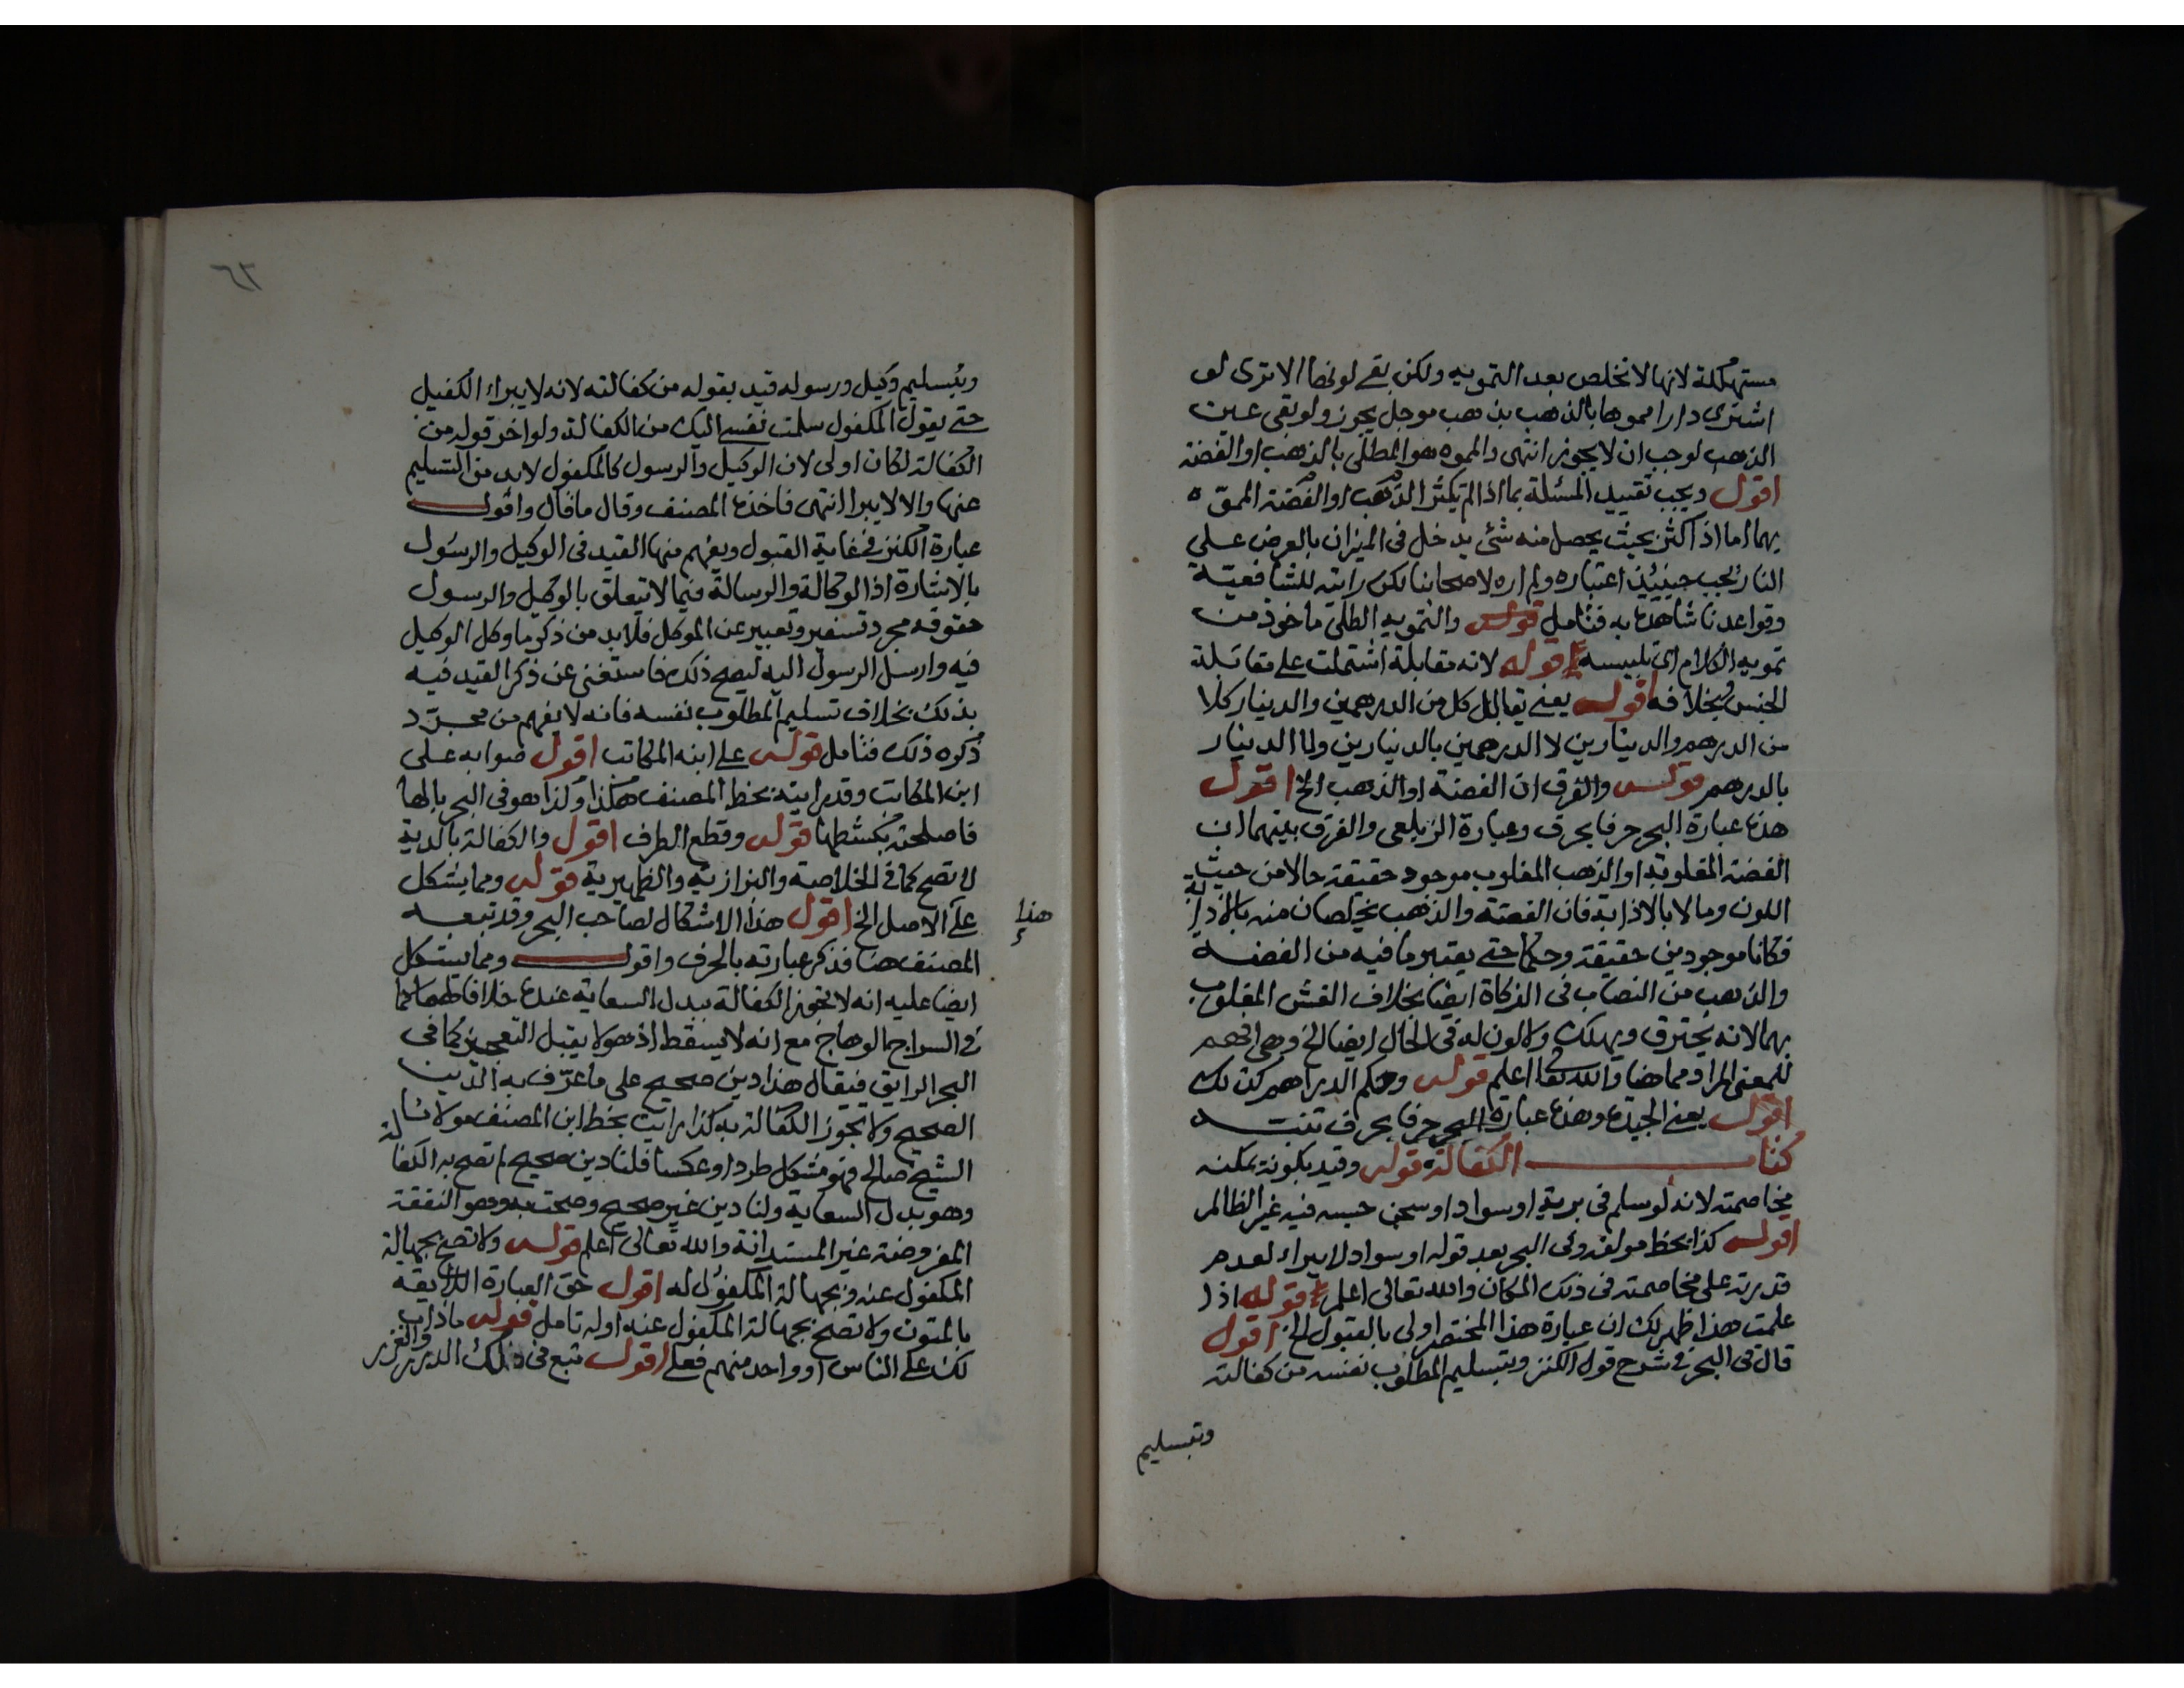 مستهلكة لانها لا تخلص بعد التمويه ولكن بقي لونها الا ترى لو
اشترى دارا مموها بالذهب بذهب موجل يجوز ولو بقي عين
الذهب لوجب ان لا يجوز انتهى والمموه هو المطلي بالذهب او الفضة
اقول ويجب تقييد المسئلة بما اذا لم يكثر الذهب او الفضة المموه
بهما اما اذا كثر بحيث يحصل منه شئ يدخل في الميزان بالعرض على
النار يجب حينئذ اعتباره ولم اره لاصحابنا لكن رايته للشافعية
وقواعدنا شاهدة به فتامل قوله والتمويه الطلي ماخوذ من
تمويه الكلام اي تلبيسه قوله لانه مقابلة اشتملت على مقابلة
الجنس وبخلافه اقول يعني يقابل كل من الدرهمين والدينار كلا
من الدرهم والدينارين لا الدرهمين بالدينارين ولا الدينار
بالدرهم قوله والفرق ان الفضة او الذهب الخ اقول
هذه عبارة البحر حرفا بحرف وعبارة الزيلعي والفرق بينهما ان
الفضة المغلوبة او الذهب المغلوب موجود حقيقة حالا من حيث
اللون ومالا بالاذابة فان الفضة والذهب يخلصان منه بالاذابة
فكانا موجودين حقيقة وحكما حتى يعتبر ما فيه من الفضة
والذهب من النصاب في الزكاة ايضا بخلاف الغش المغلوب
بهما لانه يحترق ويهلك ولا لون له في الحال ايضا الخ وهي افهم
للمعنى المراد مما هنا والله تعا اعلم قوله وحكم الدراهم كذلك
اقول يعني الجيدة وهذه عبارة البحر حرفا بحرف تنبه
كتاب الكفالة قوله وقيد بكونه يمكنه
مخاصمته لانه لو سلم في برية او سواد او سجن حبسه فيه غير الظالم
اقول كذا بخط مولفه وفي البحر بعد قوله او سواد لا يبراء لعدم
قدرته على مخاصمته في ذلك المكان والله تعالى اعلم قوله اذا
علمت هذا ظهر لك ان عبارة هذا المختصر اولى بالقبول الخ اقول
قال في البحر في شرح قول الكنز وبتسليم المطلوب نفسه من كفالته
وبتسليم
٦٣
وبتسليم وكيل ورسوله قيد بقوله من كفالته لانه لا يبراء الكفيل
حتى يقول المكفول سلمت نفسي اليك من الكفالة ولو اخر قوله من
الكفالة لكان اولى لان الوكيل والرسول كالمكفول لابد من التسليم
عنها والا لا يبرا انتهى فاخذه المصنف وقال ما قال واقول
عبارة الكنز في غاية القبول ويفهم منها القيد في الوكيل والرسول
بالاشارة اذ الوكالة والرسالة فيما لا تتعلق بالوكيل والرسول
حقوقه مجرد تسفير وتعبير عن الموكل فلا بد من ذكر ما وكل الوكيل
فيه وارسل الرسول اليه ليصح ذلك فاستغنى عن ذكر القيد فيه
بذلك بخلاف تسليم المطلوب نفسه فانه لا يفهم من مجرد
ذكره ذلك فتامل قوله على ابنه المكاتب اقول صوابه على
ابن المكاتب وقد رايته بخط المصنف هكذا وكذا هو في البحر بالها
فاصلحته بكشطها قوله وقطع الطرف اقول والكفالة بالدية
لا تصح كما في الخلاصة والبزازية والظهيرية قوله ومما يشكل
على الاصل الخ اقول هذا الاشكال لصاحب البحر وقد تبعه
هذا
المصنف هنا فذكر عبارته بالحرف واقول ومما يستكل
ايضا عليه انه لا تجوز الكفالة ببدل السعاية عنده خلافا لهما كما
في السراج الوهاج مع انه لا يسقط اذ هو لا يقبل التعجيز كما في
البحر الرايق فيقال هذا دين صحيح على ما عرف به الدين
الصحيح ولا تجوز الكفالة به كذا رايت بخط ابن المصنف مولانا
الشيخ صالح فهو مشكل طردا وعكسا فلنا دين صحيح لم تصح به الكفالة
وهو بدل السعاية ولنا دين غير صحيح وصحت به وهو النفقة
المفروضة غير المستدانة والله تعالى اعلم قوله ولا تصح بجهالة
المكفول عنه وبجهالة المكفول له اقول حق العبارة اللايقة
بالمتون ولا تصح بجهالة المكفول عنه اوله تامل قوله ما ذاب
لك على الناس او واحد منهم فعلي اقول تبع في ذلك الدرر والغرر